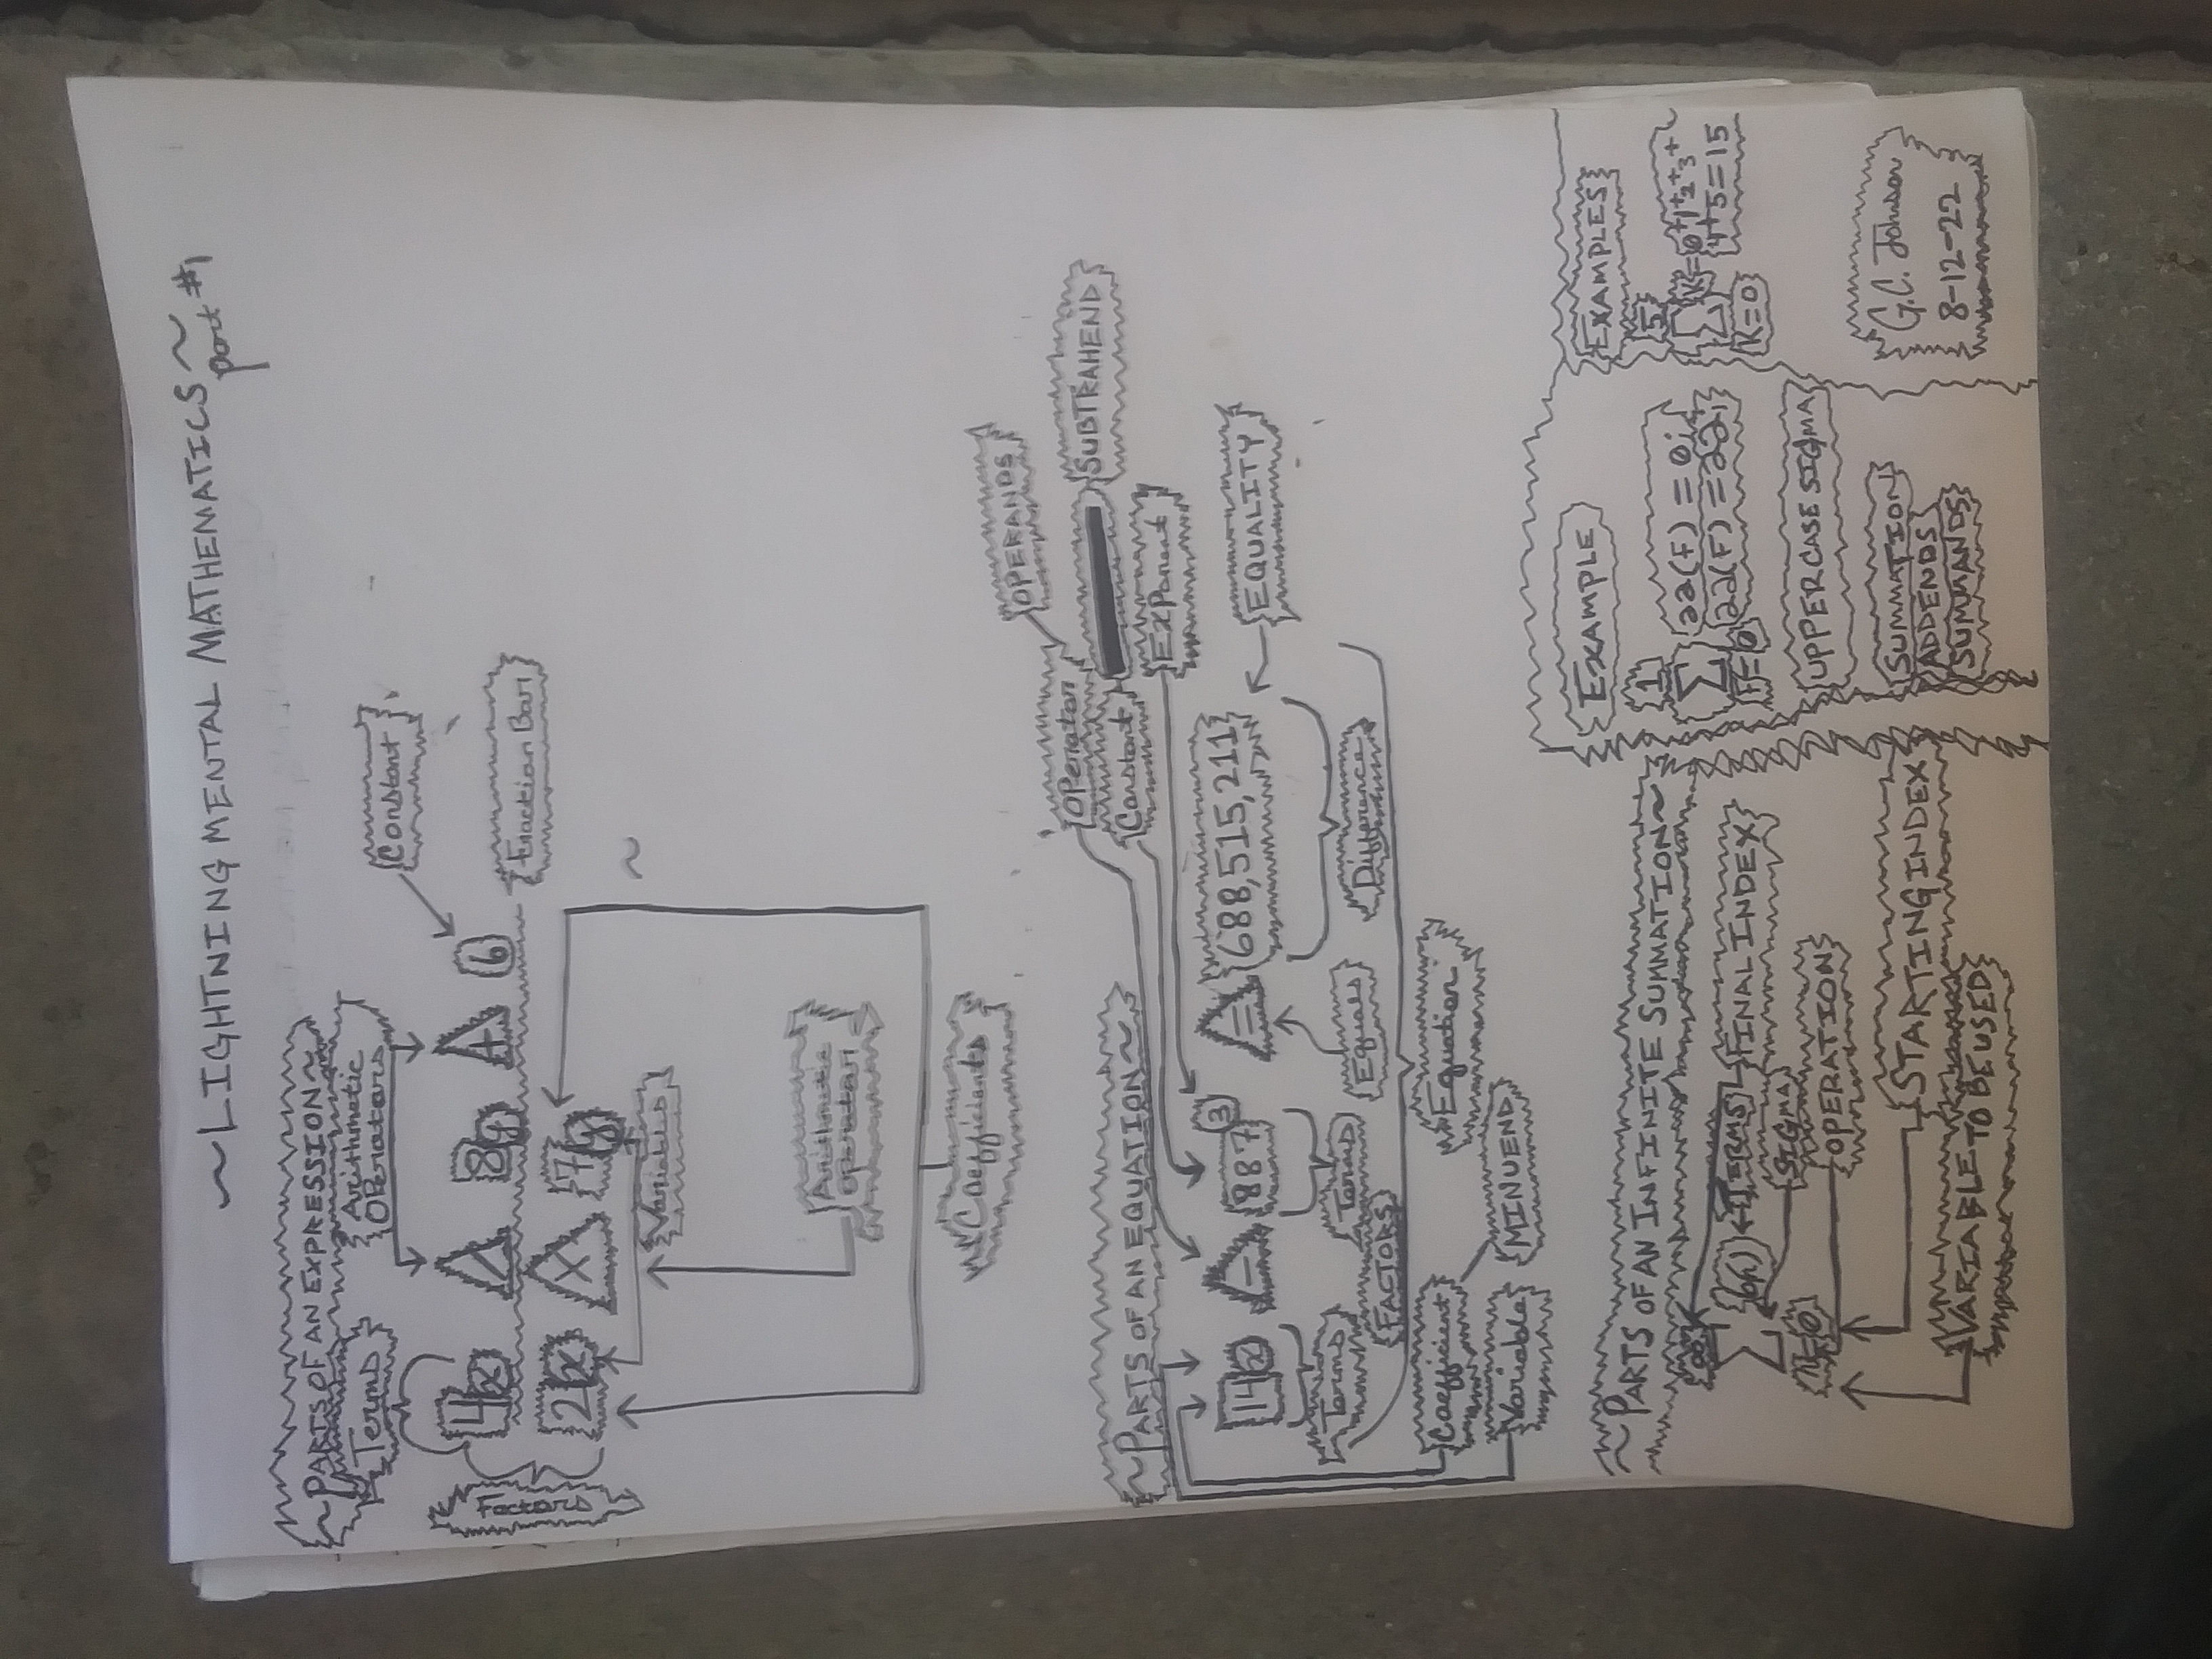 ~LIGHTNING MENTAL MATHEMATICS~
part #1
~PARTS OF AN EXPRESSION~
Terms
Arithmetic
Operators
Constant
Factors
4x / 8y + 6
Fraction Bar
2x X 7y
Variables
~
Arithmetic
operator
Coefficients
OPERANDS
Operator
SUBTRAHEND
Constant
~PARTS OF AN EQUATION~
EXPonent
14x - 887³ = 688,515,211
EQUALITY
Terms
Terms
Equals
Difference
FACTORS
Coefficient
Equation
Variable
MINUEND
~PARTS OF AN INFINITE SUMMATION~
∞
∑ (6n)
TERMS
FINAL INDEX
SIGMA
n=0
OPERATION
STARTING INDEX
VARIABLE TO BE USED
EXAMPLE
1
∑ 22(F) = 0;
22(F) = 22;
F=0
UPPER CASE SIGMA
SUMMATION
ADDENDS
SUMMANDS
EXAMPLES
5
∑ K = 0+1+2+3+
4+5=15
K=0
G.C. Johnson
8-12-22